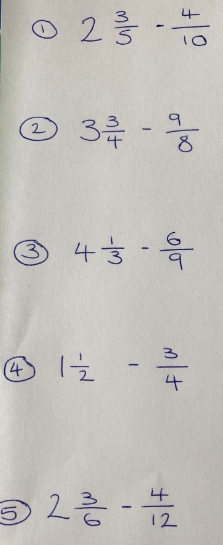 ① 2 3/5 - 4/10
② 3 3/4 - 9/8
③ 4 1/3 - 6/9
④ 1 1/2 - 3/4
⑤ 2 3/6 - 4/12